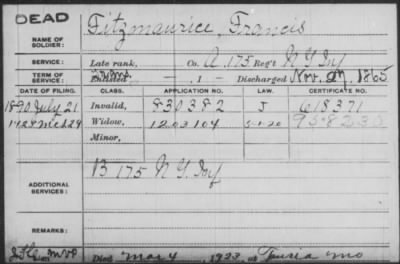 DEAD
NAME OF SOLDIER: Fitzmaurice, Francis
SERVICE: Late rank, Co. A, 175 Reg't N Y Inf
TERM OF SERVICE: Enlisted , 1 Discharged Nov. 27, 1865
DATE OF FILING. CLASS. APPLICATION NO. LAW. CERTIFICATE NO.
1890 July 21 Invalid, 830382 J 618371
1923 Mch 29 Widow, 1203104 5-1-20
Minor,
ADDITIONAL SERVICES: B 175 N Y Inf
REMARKS:
Died May 4, 1923, at Mo